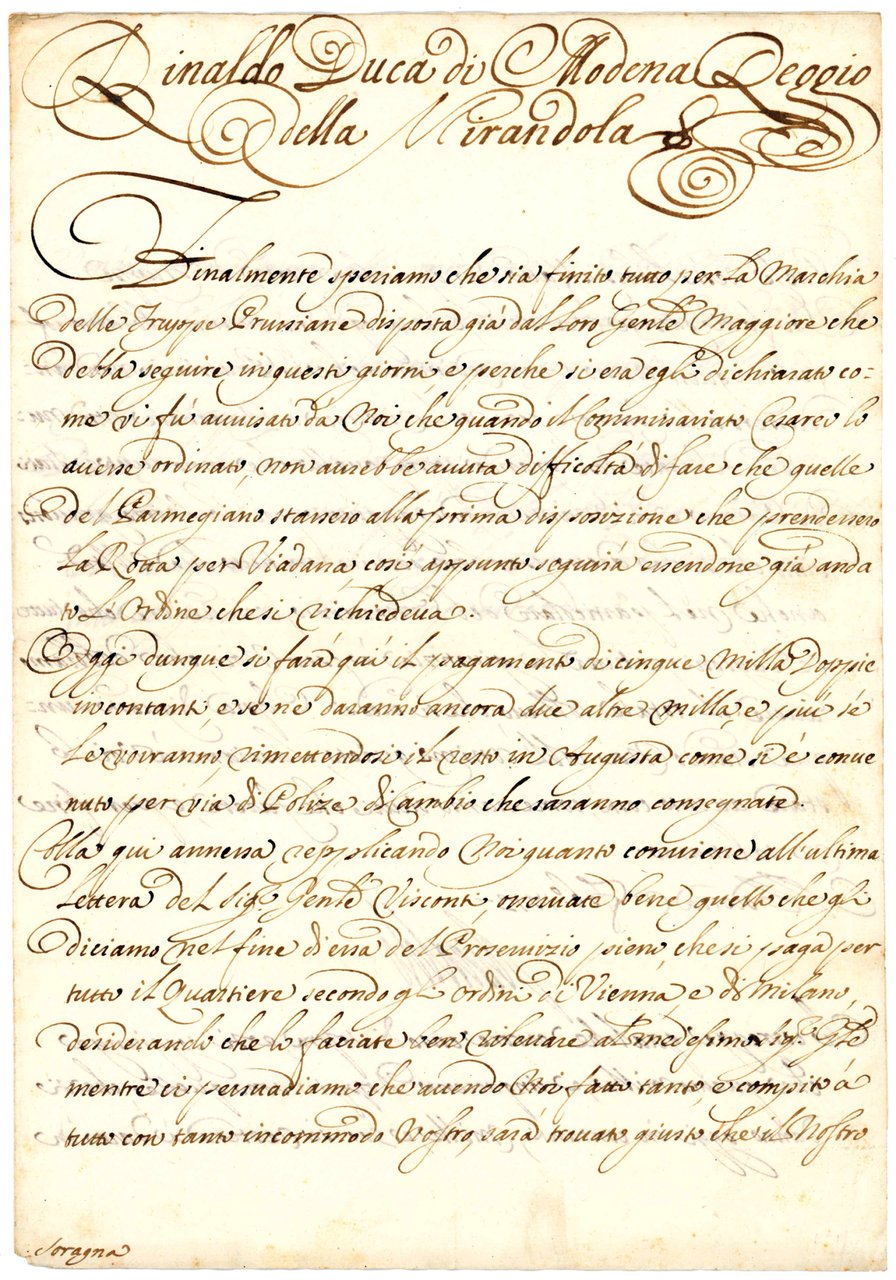 Rinaldo Duca di Modena Reggio
della Mirandola &
Finalmente speriamo che sia finito tutto per La Marchia
delle Truppe Prussiane disposta già dal Loro Gen̄le Maggiore che
debba seguire in questi giorni e perche si era egli dichiarato co=
me vi fú auuisato dá Noi che quando il Commissariato Cesareo lo
auesse ordinato, non aurebbe auuta difficoltá di fare che quelle
del Parmegiano stassero alla prima disposizione che prendessero
La Rotta per Viadana cosí appunto seguirá essendone giá anda
to L'Ordine che si richiedeua.
Oggi dunque si fará quí il pagamento di cinque milla Doppie
in contanti e se ne daranno ancora due altre milla, e piú sé
Le voranno, rimettendosi il resto in Augusta come si é conue
nuto per via di Polize di Cambio che saranno consegnate.
Colla qui annessa repplicando Noi quanto conuiene all'ultima
Lettera del Sig.r Gen̄le Visconti, osseruate bene quello che gli
diciamo nel fine di essa del Proseruizio pieno che si paga per
tutto il Quartiere secondo gli Ordini di Vienna e di Milano,
desiderando che lo faciate ben rileuare al medesimo Sig.r Gn̄le
mentre ci persuadiamo che auendo Noi fatto tanto e compito á
tutto con tanto incommodo Nostro, sará trouato giusto che il Nostro
Soragna